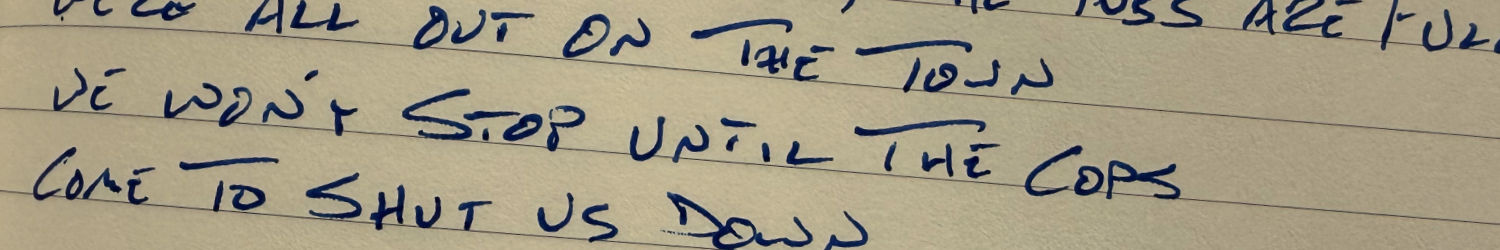 ALL OUT ON THE TOWN
WE WON'T STOP UNTIL THE COPS
COME TO SHUT US DOWN